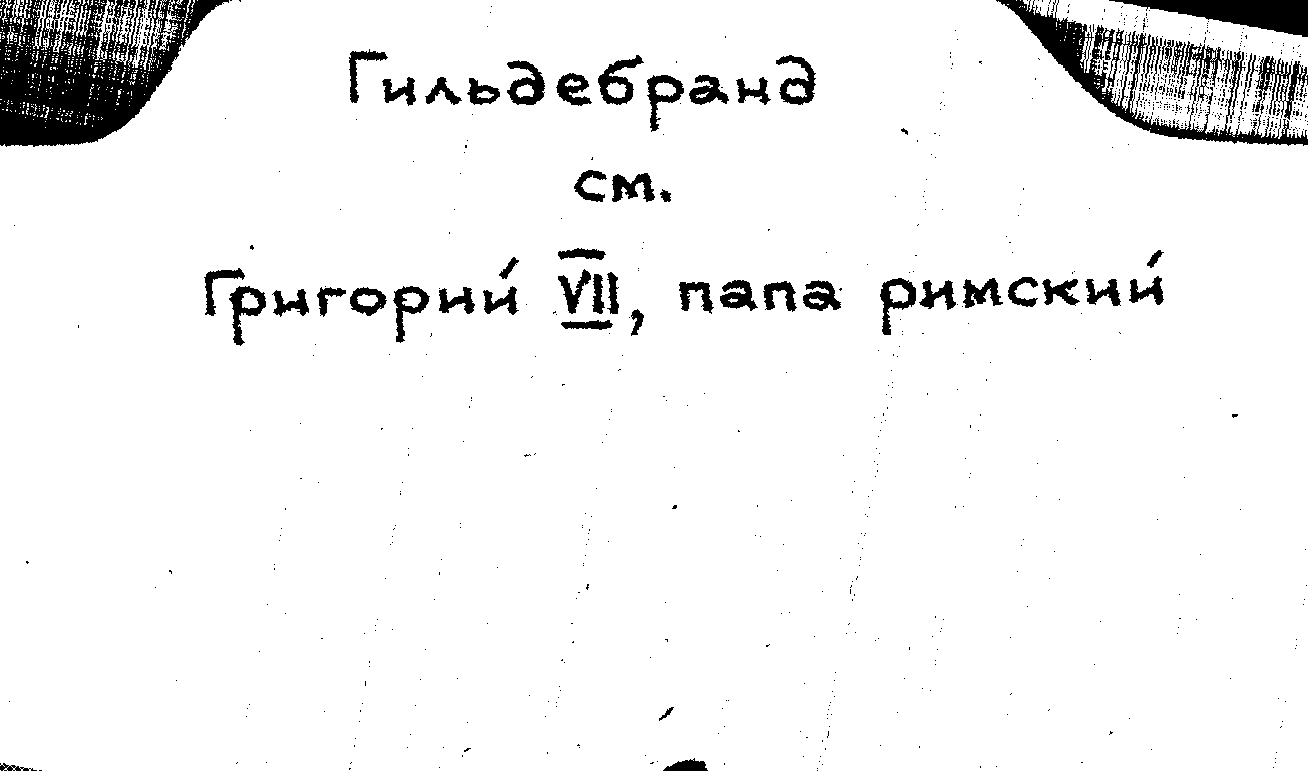 Гильдебранд
см.
Григорий VII, папа римский